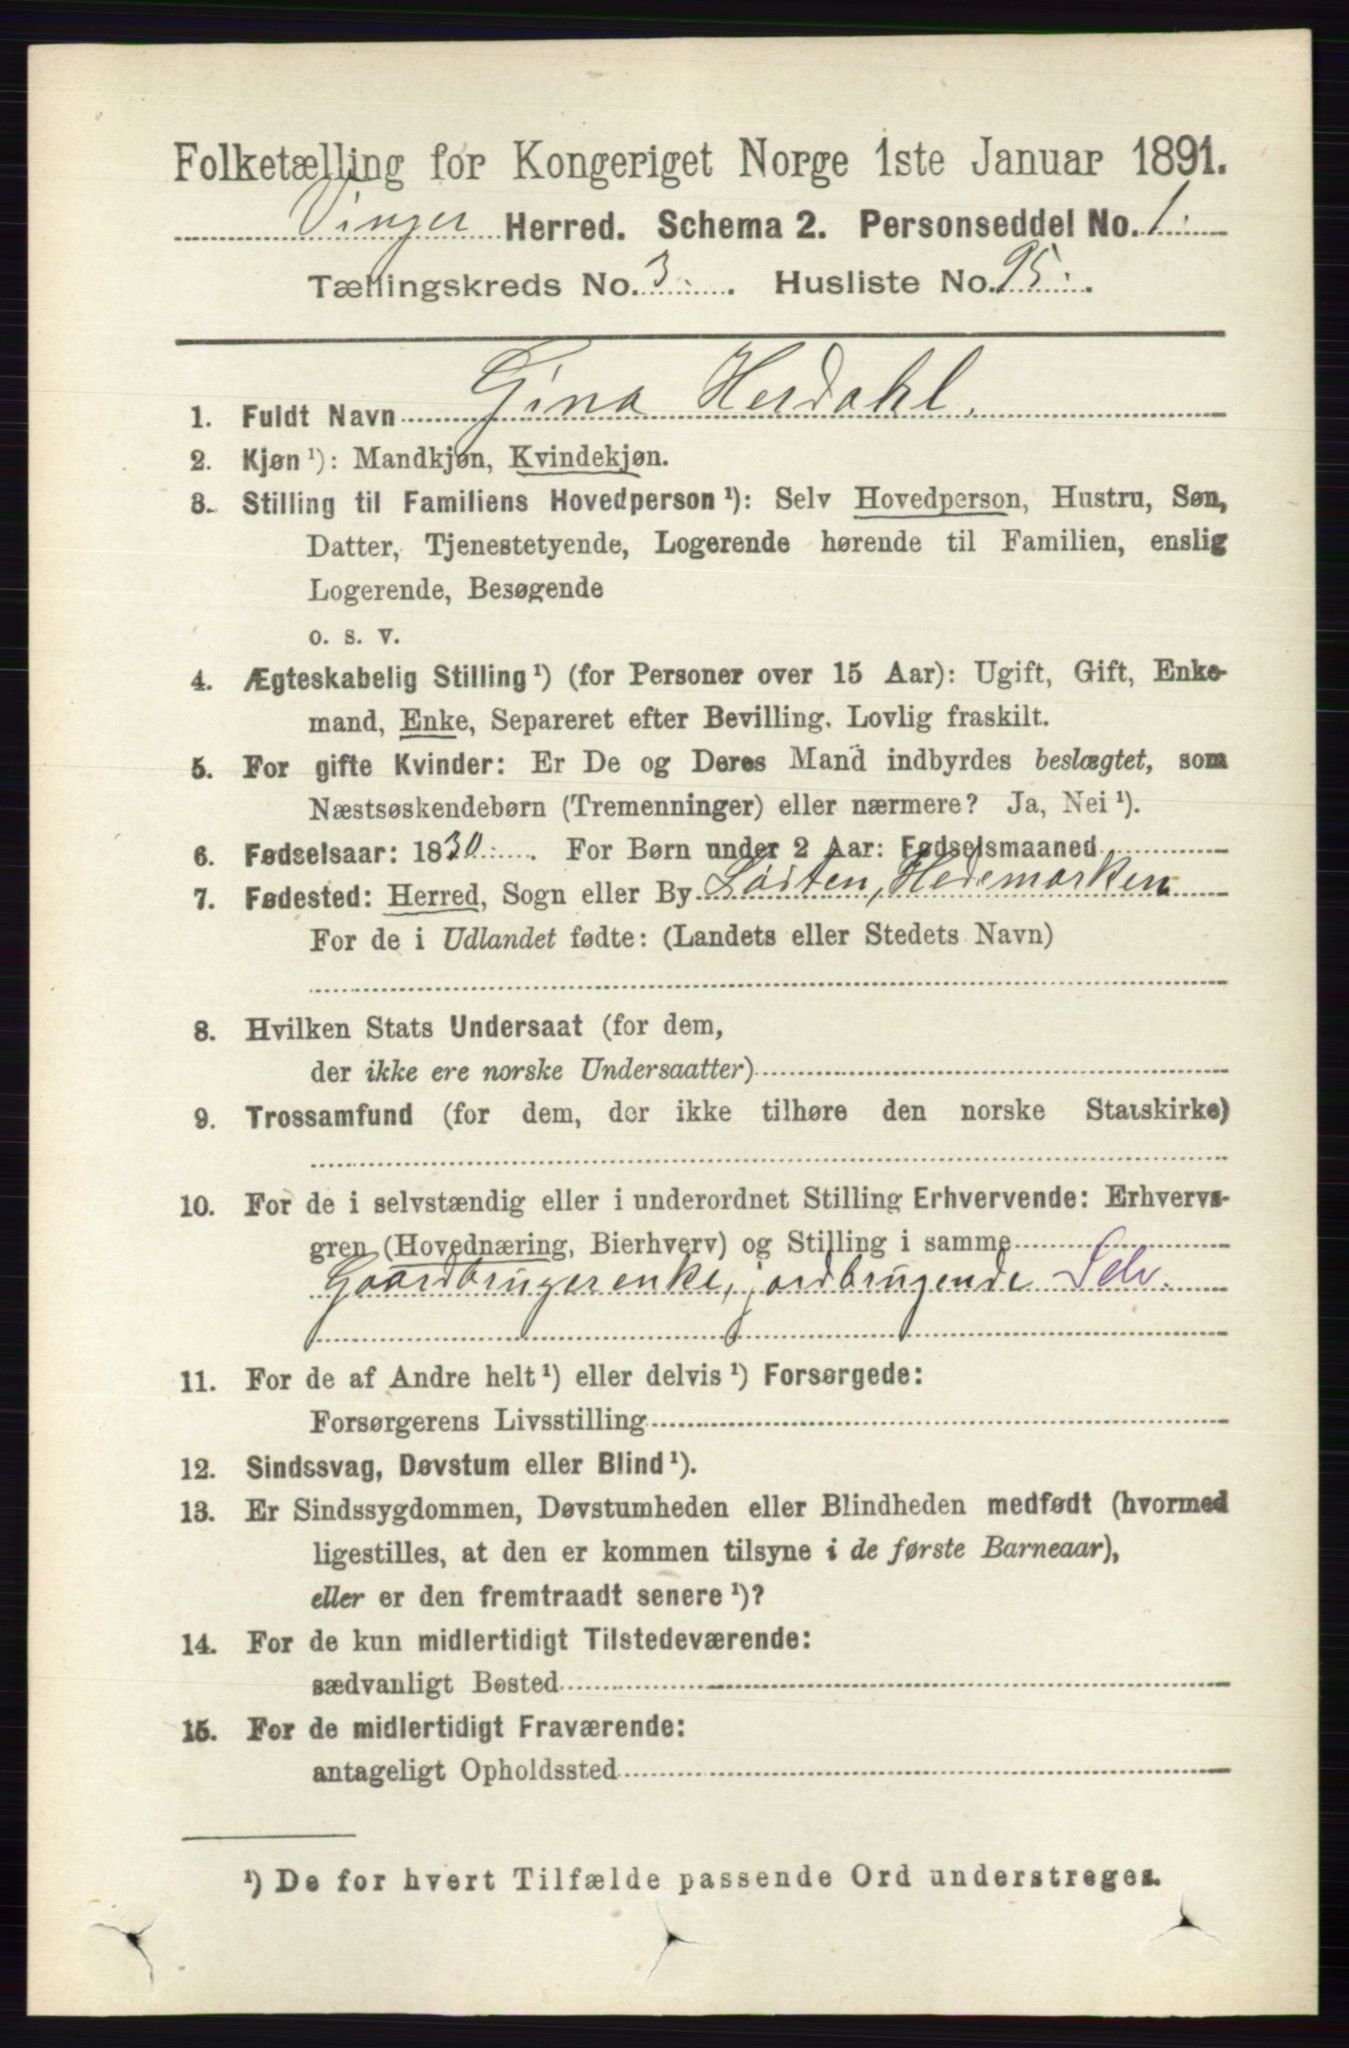 Folketælling for Kongeriget Norge 1ste Januar 1891.
Vinger Herred. Schema 2. Personseddel No. 1.
Tællingskreds No. 3. Husliste No. 95.
1. Fuldt Navn Gina Herdahl.
2. Kjøn ¹): Mandkjøn, Kvindekjøn.
3. Stilling til Familiens Hovedperson ¹): Selv Hovedperson, Hustru, Søn,
Datter, Tjenestetyende, Logerende hørende til Familien, enslig
Logerende, Besøgende
o. s. v.
4. Ægteskabelig Stilling ¹) (for Personer over 15 Aar): Ugift, Gift, Enke-
mand, Enke, Separeret efter Bevilling. Lovlig fraskilt.
5. For gifte Kvinder: Er De og Deres Mand indbyrdes beslægtet, som
Næstsøskendebørn (Tremenninger) eller nærmere? Ja, Nei ¹).
6. Fødselsaar: 1830. For Børn under 2 Aar: Fødselsmaaned
7. Fødested: Herred, Sogn eller By Løiten, Hedemarken
For de i Udlandet fødte: (Landets eller Stedets Navn)
8. Hvilken Stats Undersaat (for dem,
der ikke ere norske Undersaatter)
9. Trossamfund (for dem, der ikke tilhøre den norske Statskirke)
10. For de i selvstændig eller i underordnet Stilling Erhvervende: Erhvervs-
gren (Hovednæring, Bierhverv) og Stilling i samme
Gaardbrugerenke, jordbrugende Selv.
11. For de af Andre helt ¹) eller delvis ¹) Forsørgede:
Forsørgerens Livsstilling
12. Sindssvag, Døvstum eller Blind ¹).
13. Er Sindssygdommen, Døvstumheden eller Blindheden medfødt (hvormed
ligestilles, at den er kommen tilsyne i de første Barneaar),
eller er den fremtraadt senere ¹)?
14. For de kun midlertidigt Tilstedeværende:
sædvanligt Bosted
15. For de midlertidigt Fraværende:
antageligt Opholdssted
¹) De for hvert Tilfælde passende Ord understreges.